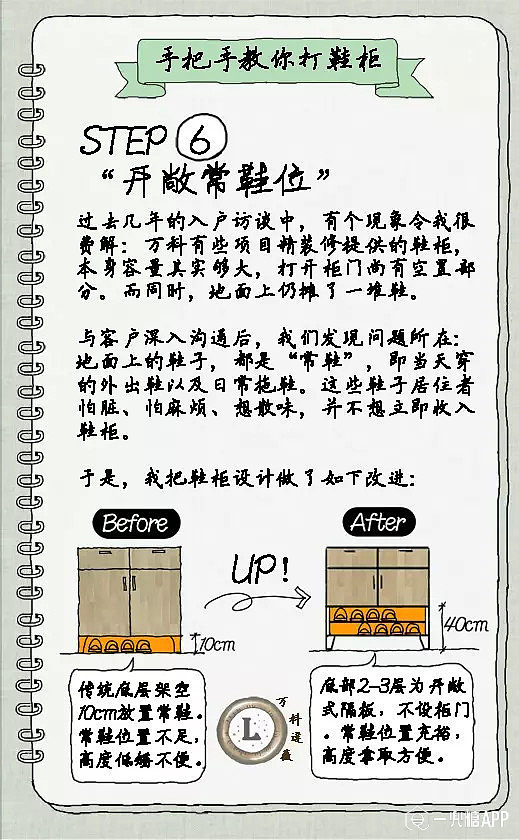 手把手教你打鞋柜
STEP 6
“开敞常鞋位”
过去几年的入户访谈中，有个现象令我很
费解：万科有些项目精装修提供的鞋柜，
本身容量其实够大，打开柜门尚有空置部
分。而同时，地面上仍摊了一堆鞋。
与客户深入沟通后，我们发现问题所在：
地面上的鞋子，都是“常鞋”，即当天穿
的外出鞋以及日常拖鞋。这些鞋子居住者
怕脏、怕麻烦、想散味，并不想立即收入
鞋柜。
于是，我把鞋柜设计做了如下改进：
Before
After
UP!
10cm
40cm
传统底层架空
10cm放置常鞋。
常鞋位置不足，
高度低矮不便。
L
万科逯薇
底部2-3层为开敞
式隔板，不设柜门
。常鞋位置充裕，
高度拿取方便。
一兜糖APP